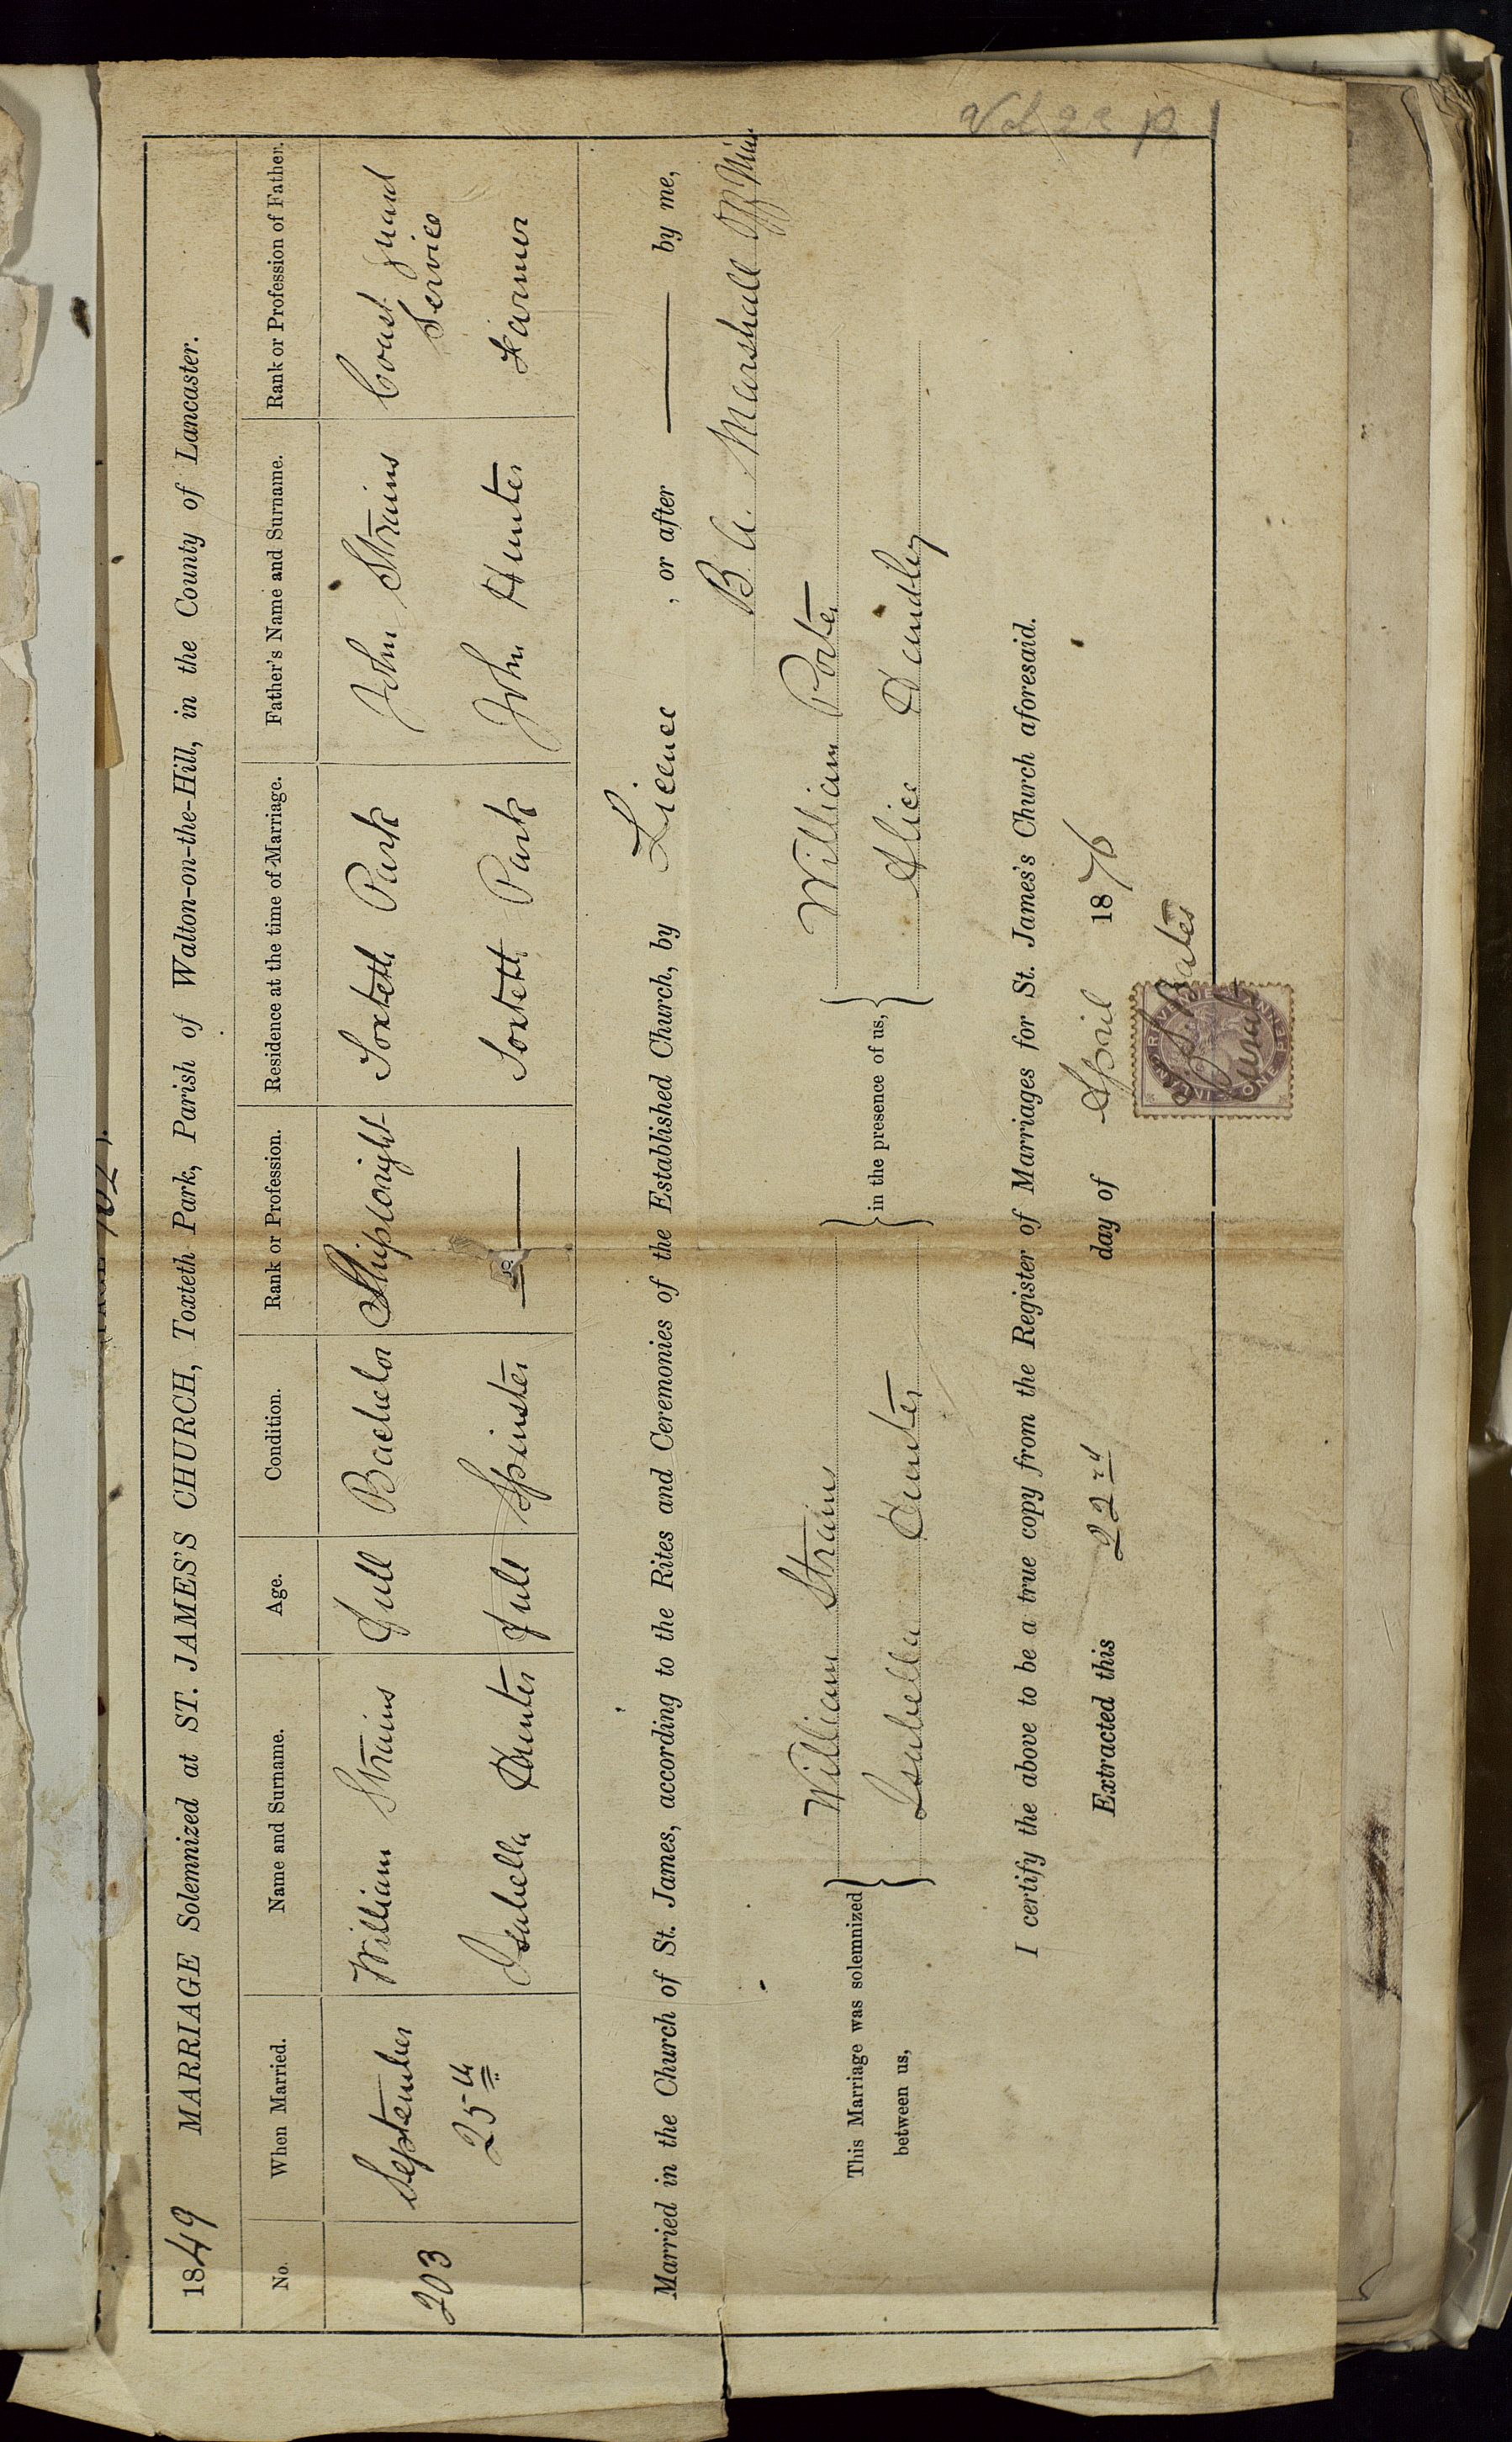 Vol 23 p 1
1849 MARRIAGE Solemnized at ST. JAMES'S CHURCH, Toxteth Park, Parish of Walton-on-the-Hill, in the County of Lancaster.
No. When Married. Name and Surname. Age. Condition. Rank or Profession. Residence at the time of Marriage. Father's Name and Surname. Rank or Profession of Father.
203 September 25th William Strains Full Bachelor Shipwright Toxteth Park John Strains Coast guard Service
Isabella Hunter Full Spinster — Toxteth Park John Hunter Farmer
Married in the Church of St. James, according to the Rites and Ceremonies of the Established Church, by Licence , or after — by me,
B. A. Marshall Off Min
This Marriage was solemnized between us, William Strains in the presence of us, William Porter
Isabella Hunter Alice Handley
I certify the above to be a true copy from the Register of Marriages for St. James's Church aforesaid.
Extracted this 22nd day of April 1876
Bates
Curate
INLAND REVENUE ONE PENNY